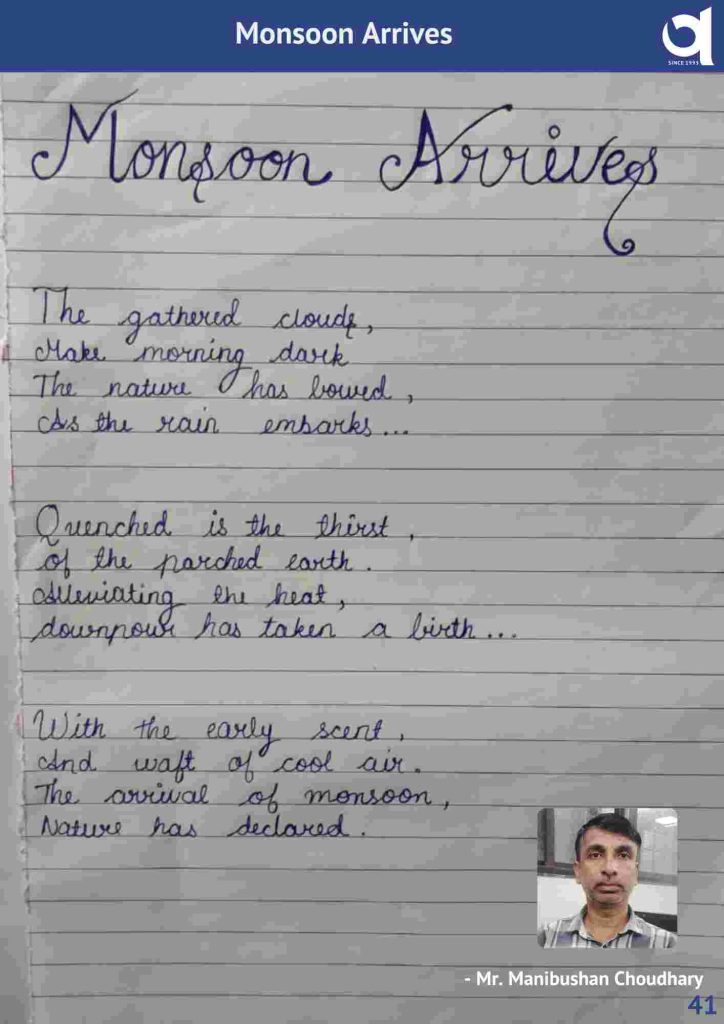 Monsoon Arrives
SINCE 1995
Monsoon Arrives
The gathered clouds,
Make morning dark
The nature has bowed,
As the rain embarks...
Quenched is the thirst,
of the parched earth.
Alleviating the heat,
downpour has taken a birth...
With the early scent,
And waft of cool air.
The arrival of monsoon,
Nature has declared.
- Mr. Manibushan Choudhary
41